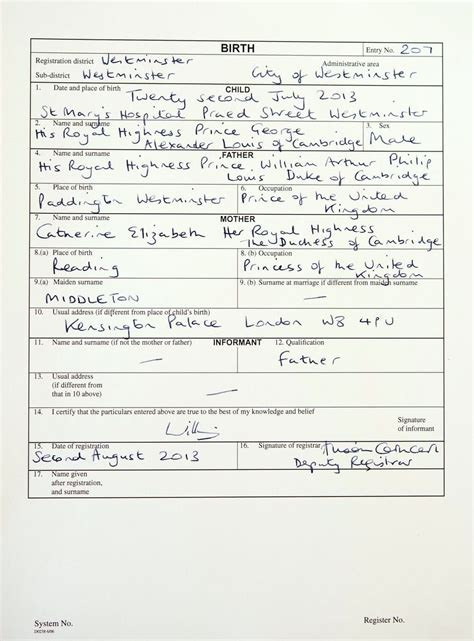 BIRTH
Entry No. 207
Registration district Westminster
Administrative area
Sub-district Westminster
City of Westminster
1. Date and place of birth CHILD
Twenty second July 2013
St Mary's Hospital Praed Street Westminster
2. Name and surname
3. Sex
His Royal Highness Prince George
Alexander Louis of Cambridge
Male
4. Name and surname FATHER
His Royal Highness Prince William Arthur Philip
Louis Duke of Cambridge
5. Place of birth
6. Occupation
Paddington Westminster
Prince of the United
Kingdom
7. Name and surname MOTHER
Catherine Elizabeth Her Royal Highness
The Duchess of Cambridge
8.(a) Place of birth
8. (b) Occupation
Reading
Princess of the United
Kingdom
9.(a) Maiden surname
9. (b) Surname at marriage if different from maiden surname
MIDDLETON
—
10. Usual address (if different from place of child's birth)
Kensington Palace London W8 4PU
11. Name and surname (if not the mother or father) INFORMANT
12. Qualification
—
Father
13. Usual address
(if different from
that in 10 above)
—
14. I certify that the particulars entered above are true to the best of my knowledge and belief
Signature
of informant
15. Date of registration
16. Signature of registrar
Second August 2013
Deputy Registrar
17. Name given
after registration,
and surname
System No.
Register No.